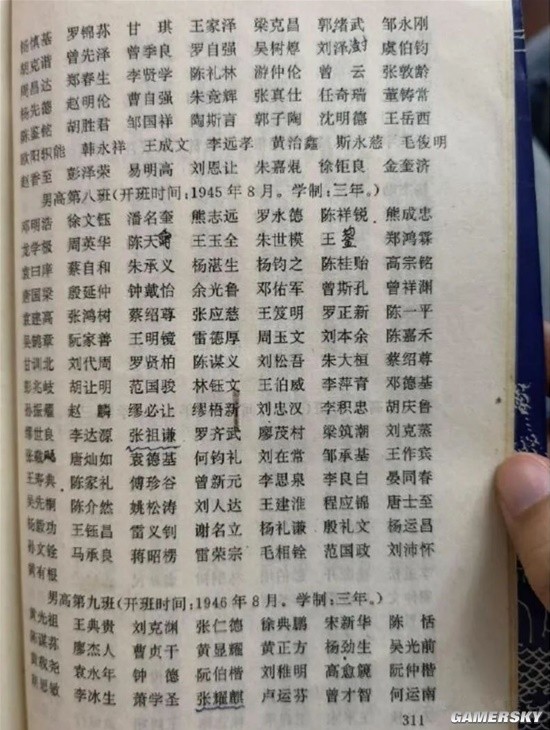 杨慎基 罗锦荪 甘琪 王家泽 梁克昌 郭绪武 邹永刚
胡克谐 曾先泽 曾季良 罗自强 吴树惇 刘泽澍 虞伯钧
周昌达 郑春生 李贤学 陈礼林 游仲伦 曾云 张敦龄
杨先德 赵明伦 曹自强 朱竞辉 张真仕 任奇瑞 董铸常
陈鉴铊 胡胜君 邹国祥 陶斯言 郭子陶 沈明德 王岳西
欧阳积能 韩永祥 王成文 李远孝 黄治鑫 斯永慈 毛俊明
赵香至 彭泽荣 易明高 刘恩让 朱嘉焜 徐钜良 金奎济
男高第八班(开班时间:1945年8月。学制:三年。)
邓明浩 徐文钰 潘名奎 熊志远 罗永德 陈祥锐 熊成忠
龙学极 周英华 陈天 王玉全 朱世模 王 郑鸿霖
袁曰庠 蔡自和 朱承义 杨湛生 杨钧之 陈桂贻 高宗铭
唐国梁 殷延仲 钟戴怡 余光鲁 邓佑军 曾斯孔 曾祥渊
袁建高 张鸿树 蔡绍尊 张应慈 王笈明 罗正新 陈一平
吴鹤皋 阮家善 王明镜 雷德厚 周玉文 刘本余 陈嘉禾
甘训北 刘代周 罗贤柏 陈谋义 刘松吾 朱大桓 蔡绍尊
彭兆岐 胡让明 范国骏 林钰文 王伯威 李萍青 邓德基
孙振耀 赵麟 缪必让 缪梧新 刘忠汉 李积忠 胡庆鲁
缪世良 李达源 张祖谦 罗齐武 廖茂村 梁筑潮 刘克荪
唐灿如 袁德基 何钧礼 刘在常 邹承基 王作宾
王寿典 陈家礼 傅珍谷 曾新元 李思泉 李良白 晏同春
吴先桐 陈介然 姚松涛 刘人达 王建淮 程应锦 唐士至
杨毅功 王钰昌 雷义钊 谢名立 杨礼谦 殷礼文 杨运昌
孙文铨 马承良 蒋昭楞 雷荣宗 毛相铨 范国政 刘沛怀
黄有根
男高第九班(开班时间:1946年8月。学制:三年。)
黄光祖 王典贵 刘克渊 张仁德 徐典鹏 宋新华 陈恬
陈谋荪 廖杰人 曹贞干 黄显耀 黄正方 杨劲生 吴光前
黄载尧 袁永年 钟德 阮伯楷 刘稚明 高愈镜 阮仲楷
思敏 李冰生 萧学圣 张耀麒 卢运芬 曾才智 何运南
311
GAMERSKY